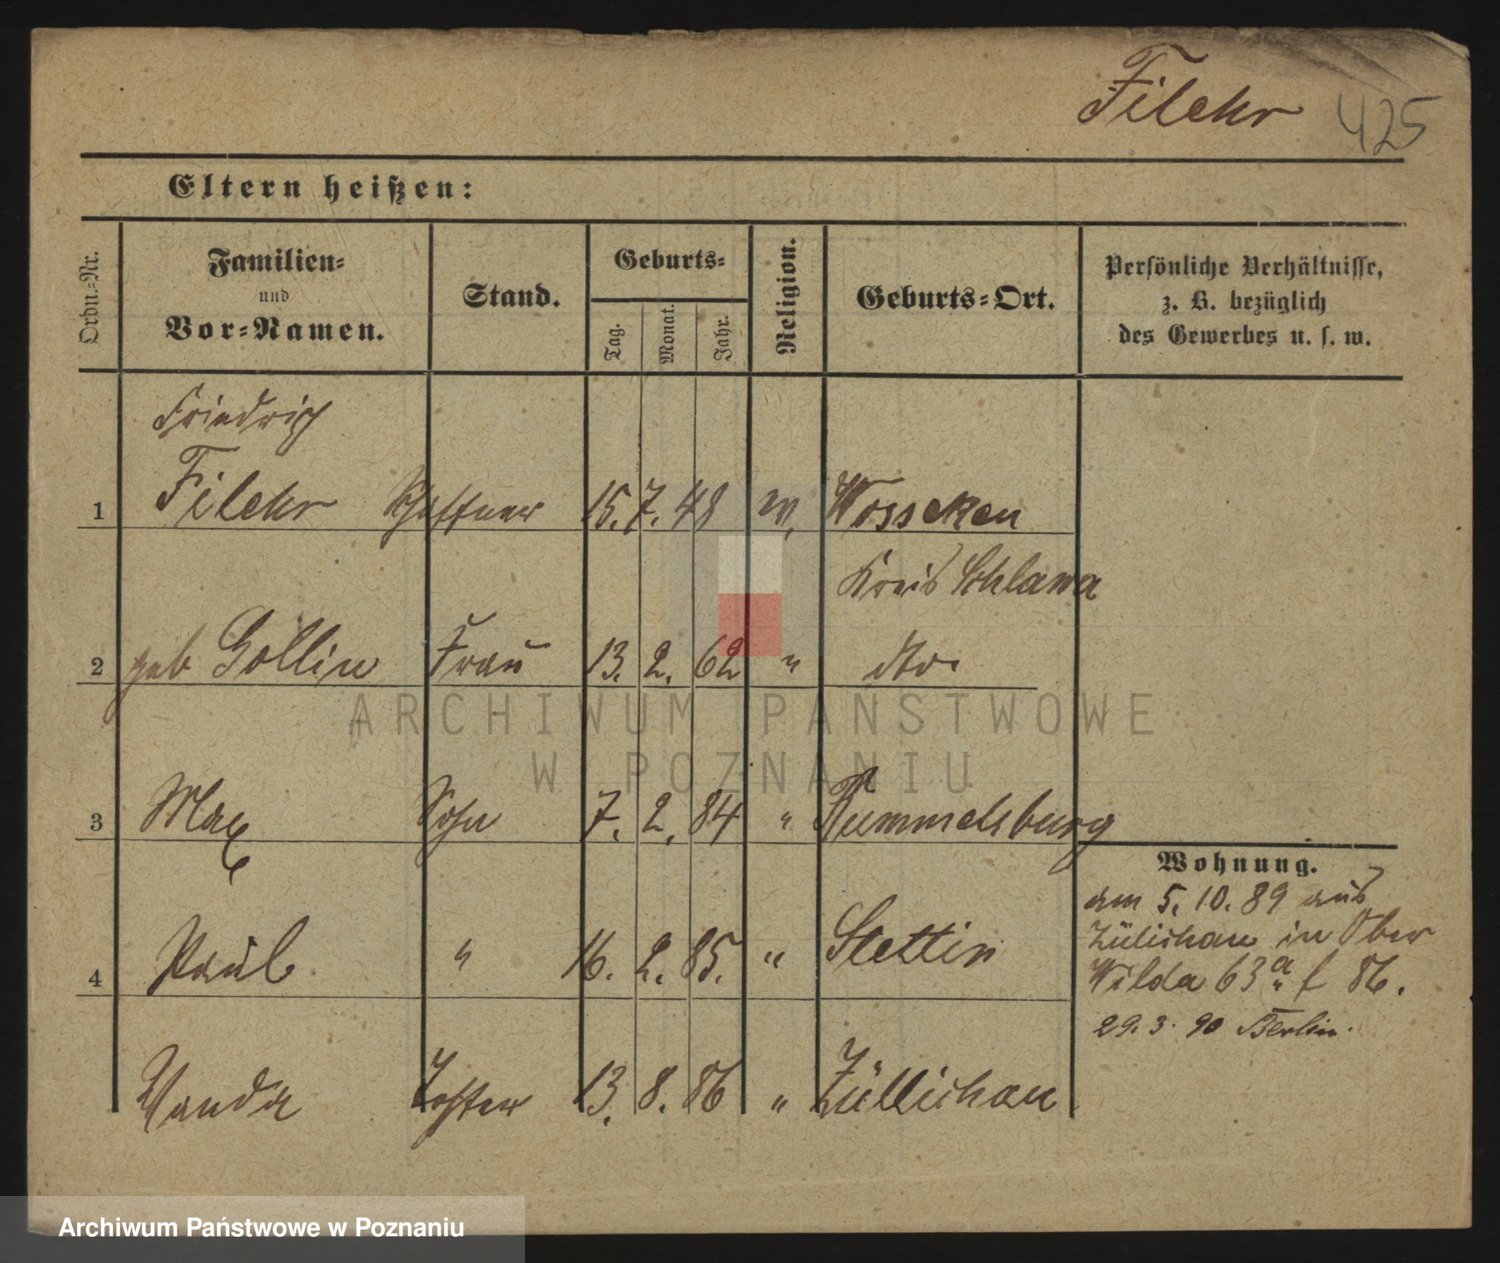 Filehr 425
Eltern heißen:
Ordn.-Nr.
Familien-
und
Vor-Namen.
Stand.
Geburts-
Tag.
Monat.
Jahr.
Religion.
Geburts-Ort.
Persönliche Verhältnisse,
z. B. bezüglich
des Gewerbes u. s. w.
Friedrich
1 Filehr Schaffner 15. 7. 48 ev. Wosseken
Kreis Schlawa
2 geb Gollin Frau 13. 2. 62 " dto.
3 Max Sohn 7. 2. 84 " Rummelsburg
4 Paul " 16. 2. 85. " Stettin
Wanda Tochter 13. 8. 86 " Züllichau
Wohnung.
am 5. 10. 89 aus
Zülichau in Ober
Wilda 63a f 86.
29. 3. 90 Berlin.
ARCHIWUM PAŃSTWOWE
W POZNANIU
Archiwum Państwowe w Poznaniu